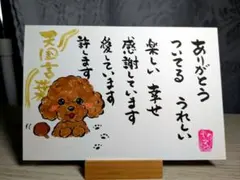 天国言葉
ありがとう
ついてる うれしい
楽しい 幸せ
感謝しています
愛しています
許します